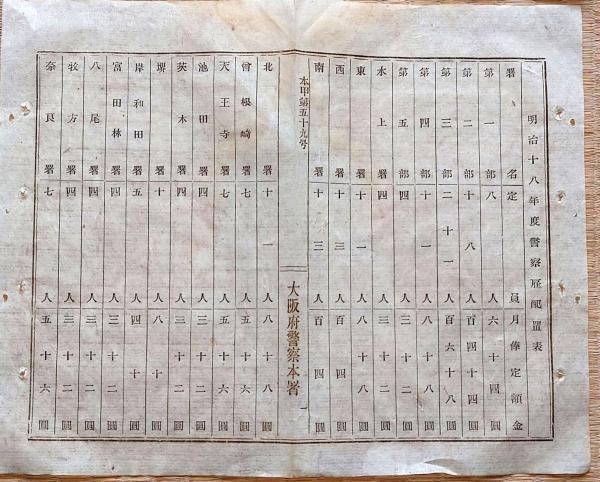 明治十八年度警察雇配置表
署名 定員 月俸定額金
第一部 八人 六十四圓
第二部 十八人 百四十四圓
第三部 二十一人 百六十八圓
第四部 十一人 八十八圓
第五部 四人 三十二圓
水上署 四人 三十二圓
東署 十一人 八十八圓
西署 十三人 百四圓
南署 十三人 百四圓
本甲第五十九号
大阪府警察本署
一
北署 十一人 八十八圓
曾根崎署 七人 五十六圓
天王寺署 七人 五十六圓
池田署 四人 三十二圓
茨木署 四人 三十二圓
堺署 十人 八十圓
岸和田署 五人 四十圓
富田林署 四人 三十二圓
八尾署 四人 三十二圓
枚方署 四人 三十二圓
奈良署 七人 五十六圓